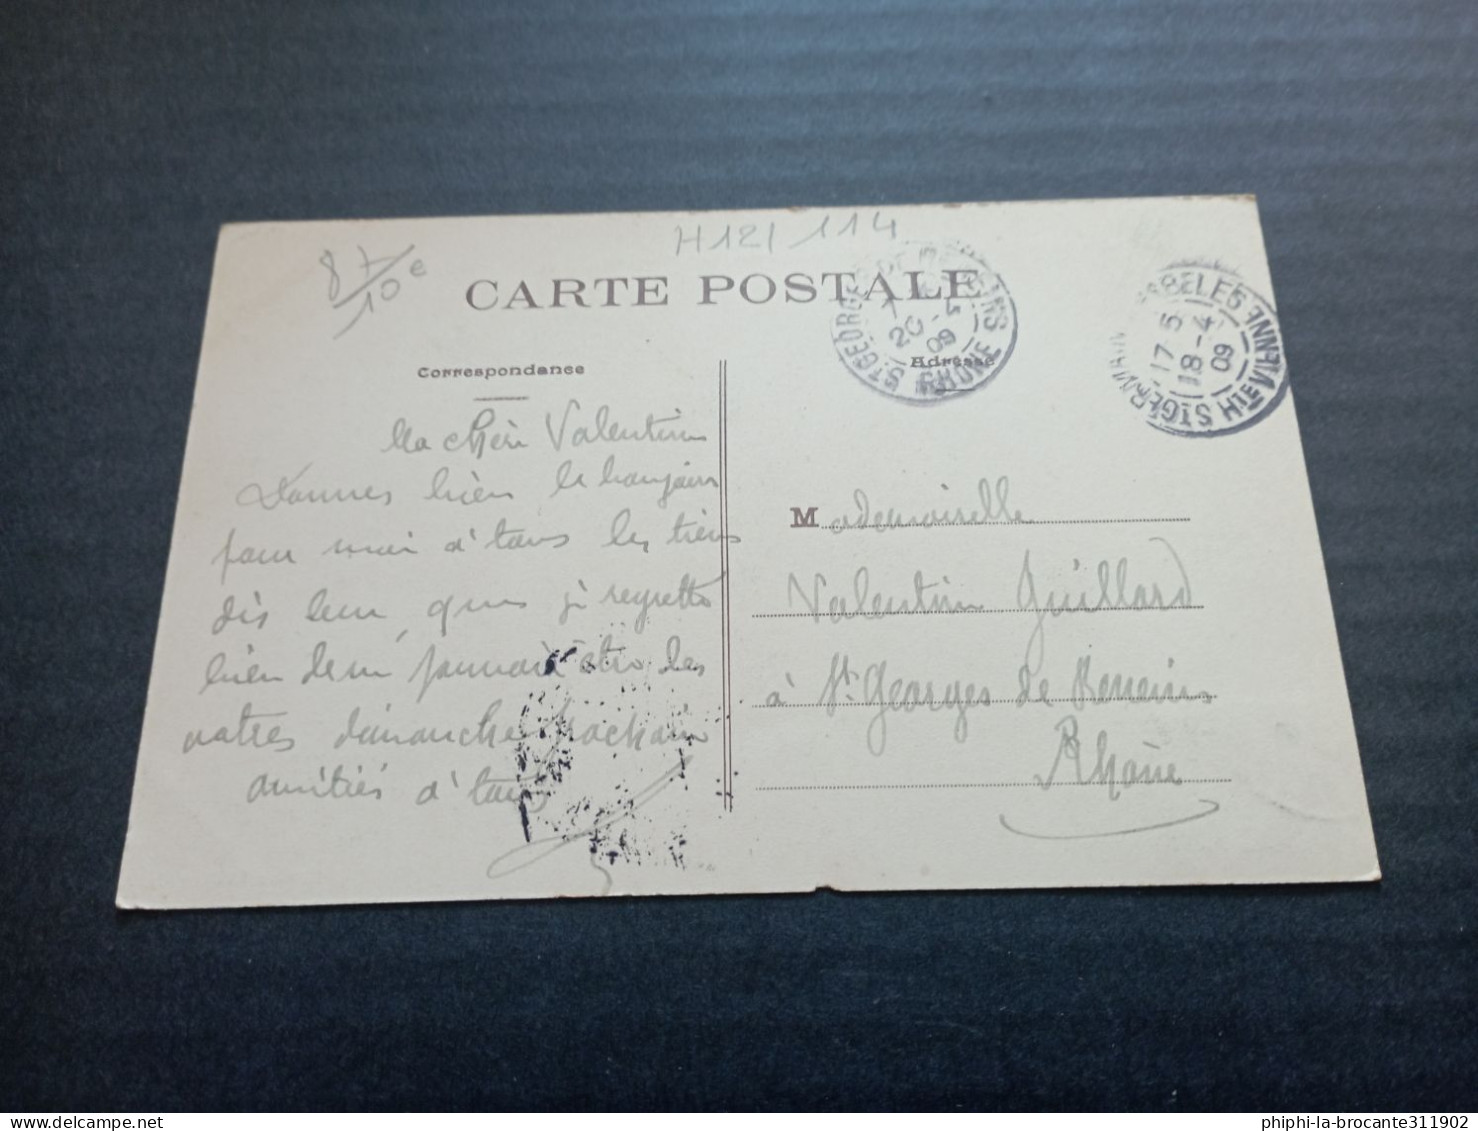 H121 114
87/10e
CARTE POSTALE
Correspondance
Adresse
ST GEORGES DE RENEINS
20-4
09
RHONE
ST GERMAIN
17 5
18-4
09
HTE VIENNE
Ma chère Valentine
Donnes bien le bonjour
pour moi à tous les tiens
dis leur que je regrette
bien de ne pouvoir être des
votres dimanche prochain
amitiés à tous
Mademoiselle
Valentin Guillard
à St Georges de Reneins
Rhône
phiphi-la-brocante311902